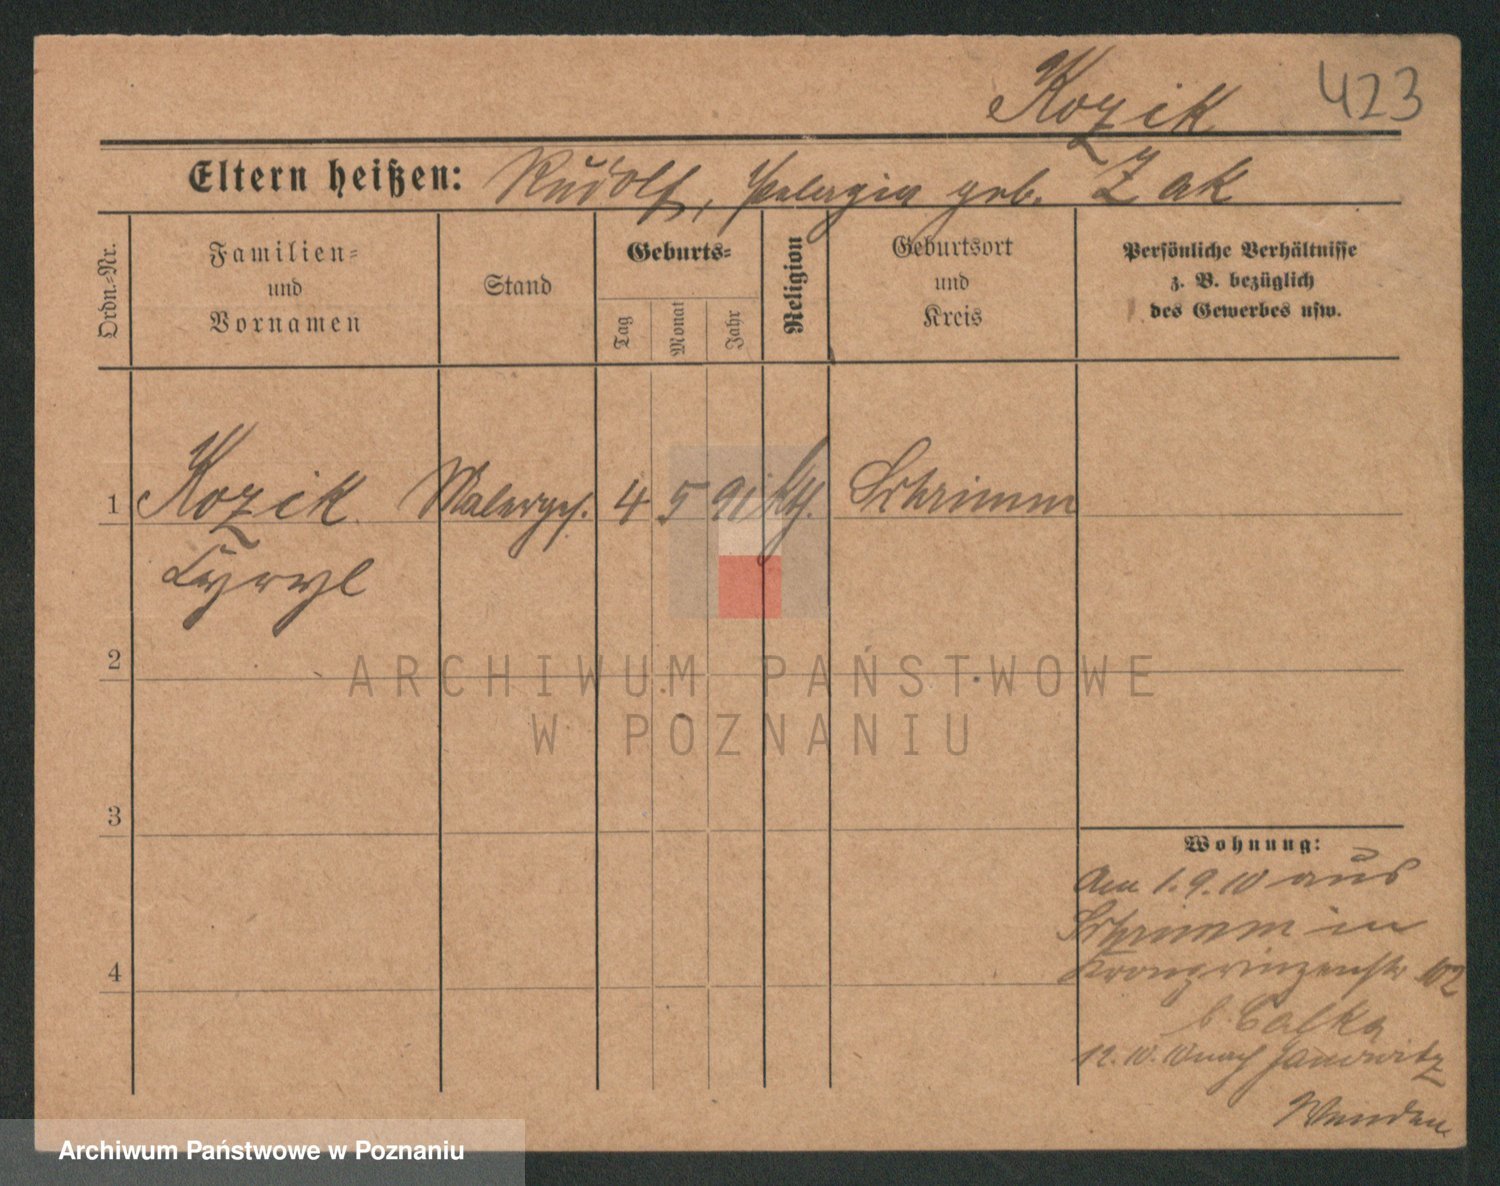 Kozik 423
Eltern heißen: Rudolf, Pelagia geb. Zak
Ordn.=Nr.
Familien=
und
Vornamen
Stand
Geburts=
Tag
Monat
Jahr
Religion
Geburtsort
und
Kreis
Persönliche Verhältnisse
z. B. bezüglich
des Gewerbes usw.
1 Kozik Malerges. 4 5 91 kth. Schrimm
Cyryl
2
3
4
Wohnung:
Am 1.9.10 aus
Schrimm in
Kronprinzenstr. 102
b. Calka
12.10.10 nach Janowitz
Wenden
ARCHIWUM PAŃSTWOWE
W POZNANIU
Archiwum Państwowe w Poznaniu